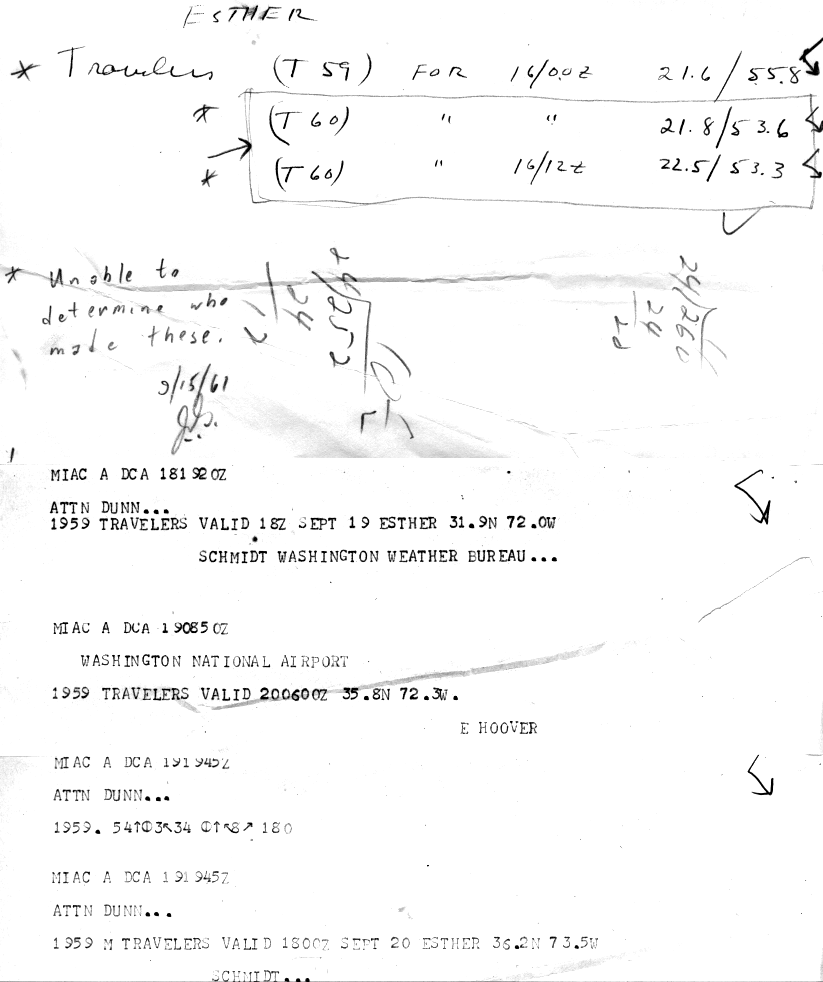 ESTHER
* Travelers (T 59) FOR 16/00Z 21.6/55.8
* (T 60) " " 21.8/53.6
* (T 60) " 16/12Z 22.5/53.3
* Unable to
determine who
made these.
9/15/61
MIAC A DCA 181920Z
ATTN DUNN...
1959 TRAVELERS VALID 18Z SEPT 19 ESTHER 31.9N 72.0W
SCHMIDT WASHINGTON WEATHER BUREAU...
MIAC A DCA 190850Z
WASHINGTON NATIONAL AIRPORT
1959 TRAVELERS VALID 200600Z 35.8N 72.3W.
E HOOVER
MIAC A DCA 191945Z
ATTN DUNN...
1959. 54↑⦶3↖34 ⦶↑↖8↗ 180
MIAC A DCA 191945Z
ATTN DUNN...
1959 M TRAVELERS VALID 1800Z SEPT 20 ESTHER 36.2N 73.5W
SCHMIDT...